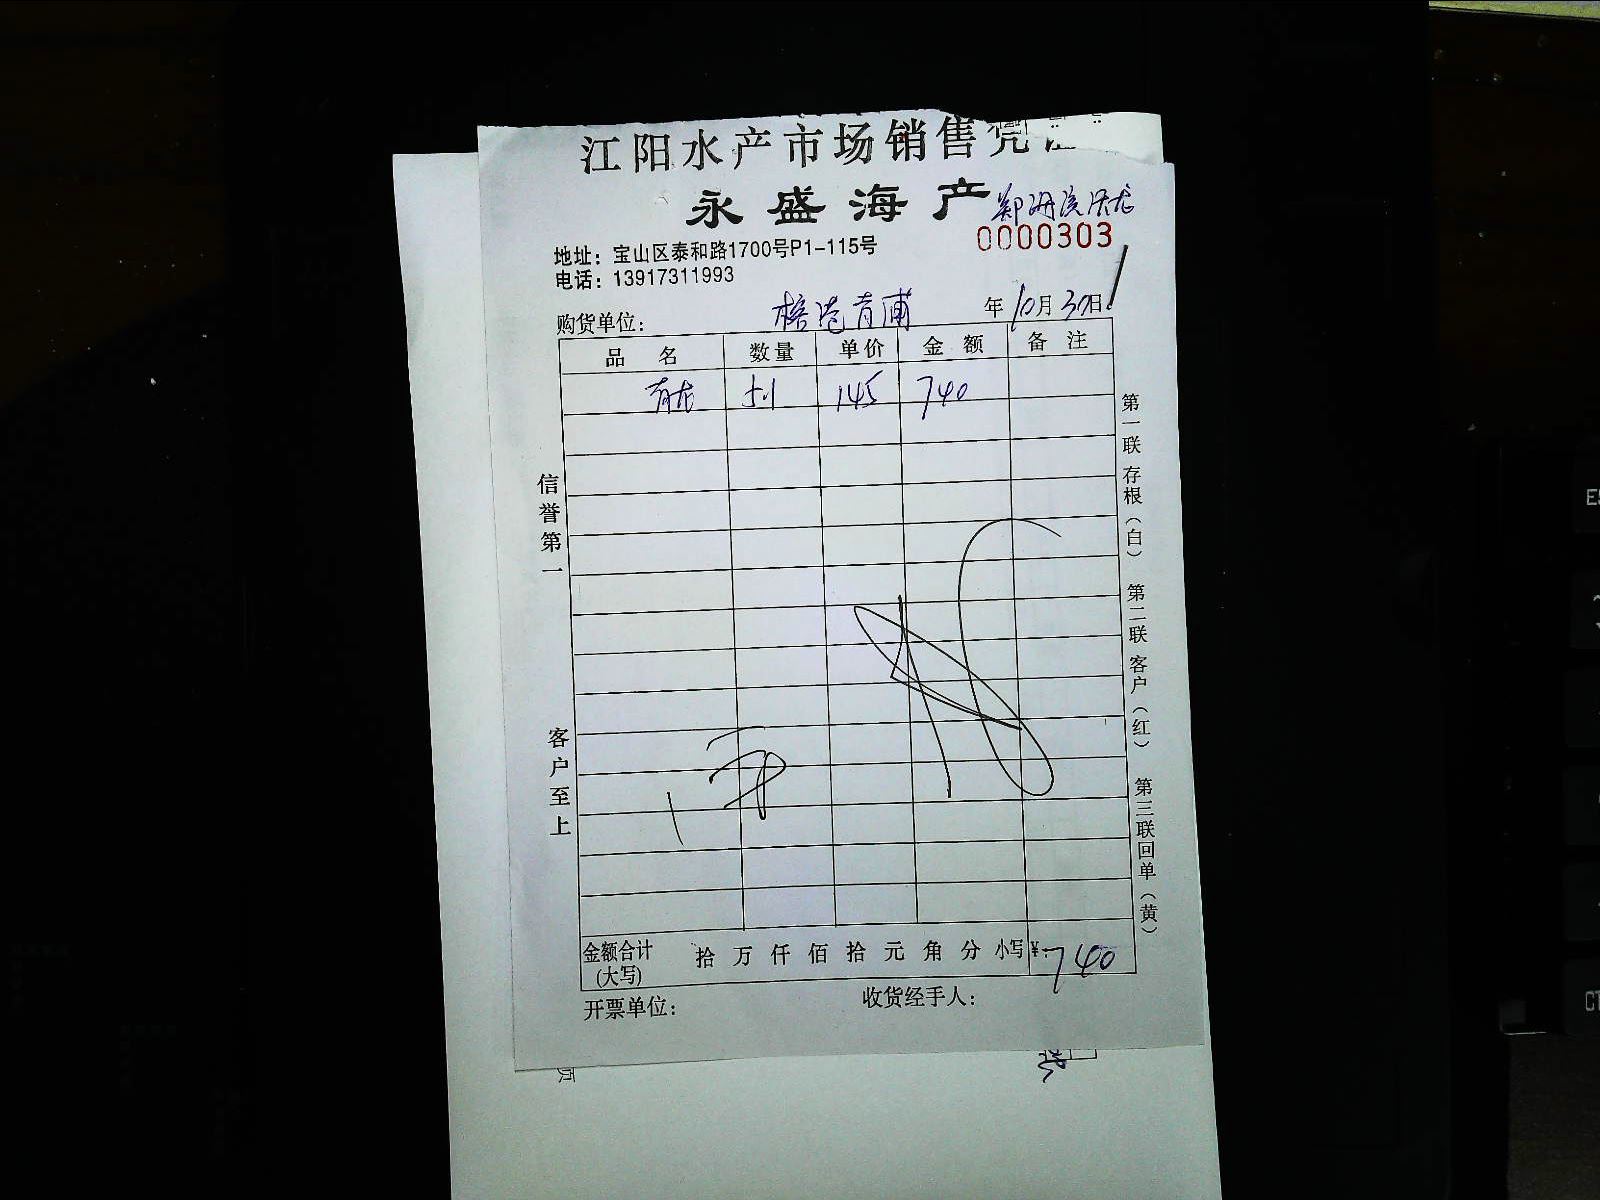 江阳水产市场销售凭证
永盛海产
0000303
地址：宝山区泰和路1700号P1-115号
电话：13917311993
购货单位： 青浦 年10月30日
品名 数量 单价 金额 备注
青龙 5.1 145 740
信誉第一
客户至上
第一联存根（白） 第二联客户（红） 第三联回单（黄）
金额合计（大写） 拾 万 仟 佰 拾 元 角 分 小写¥：740
开票单位： 收货经手人：
页
ES